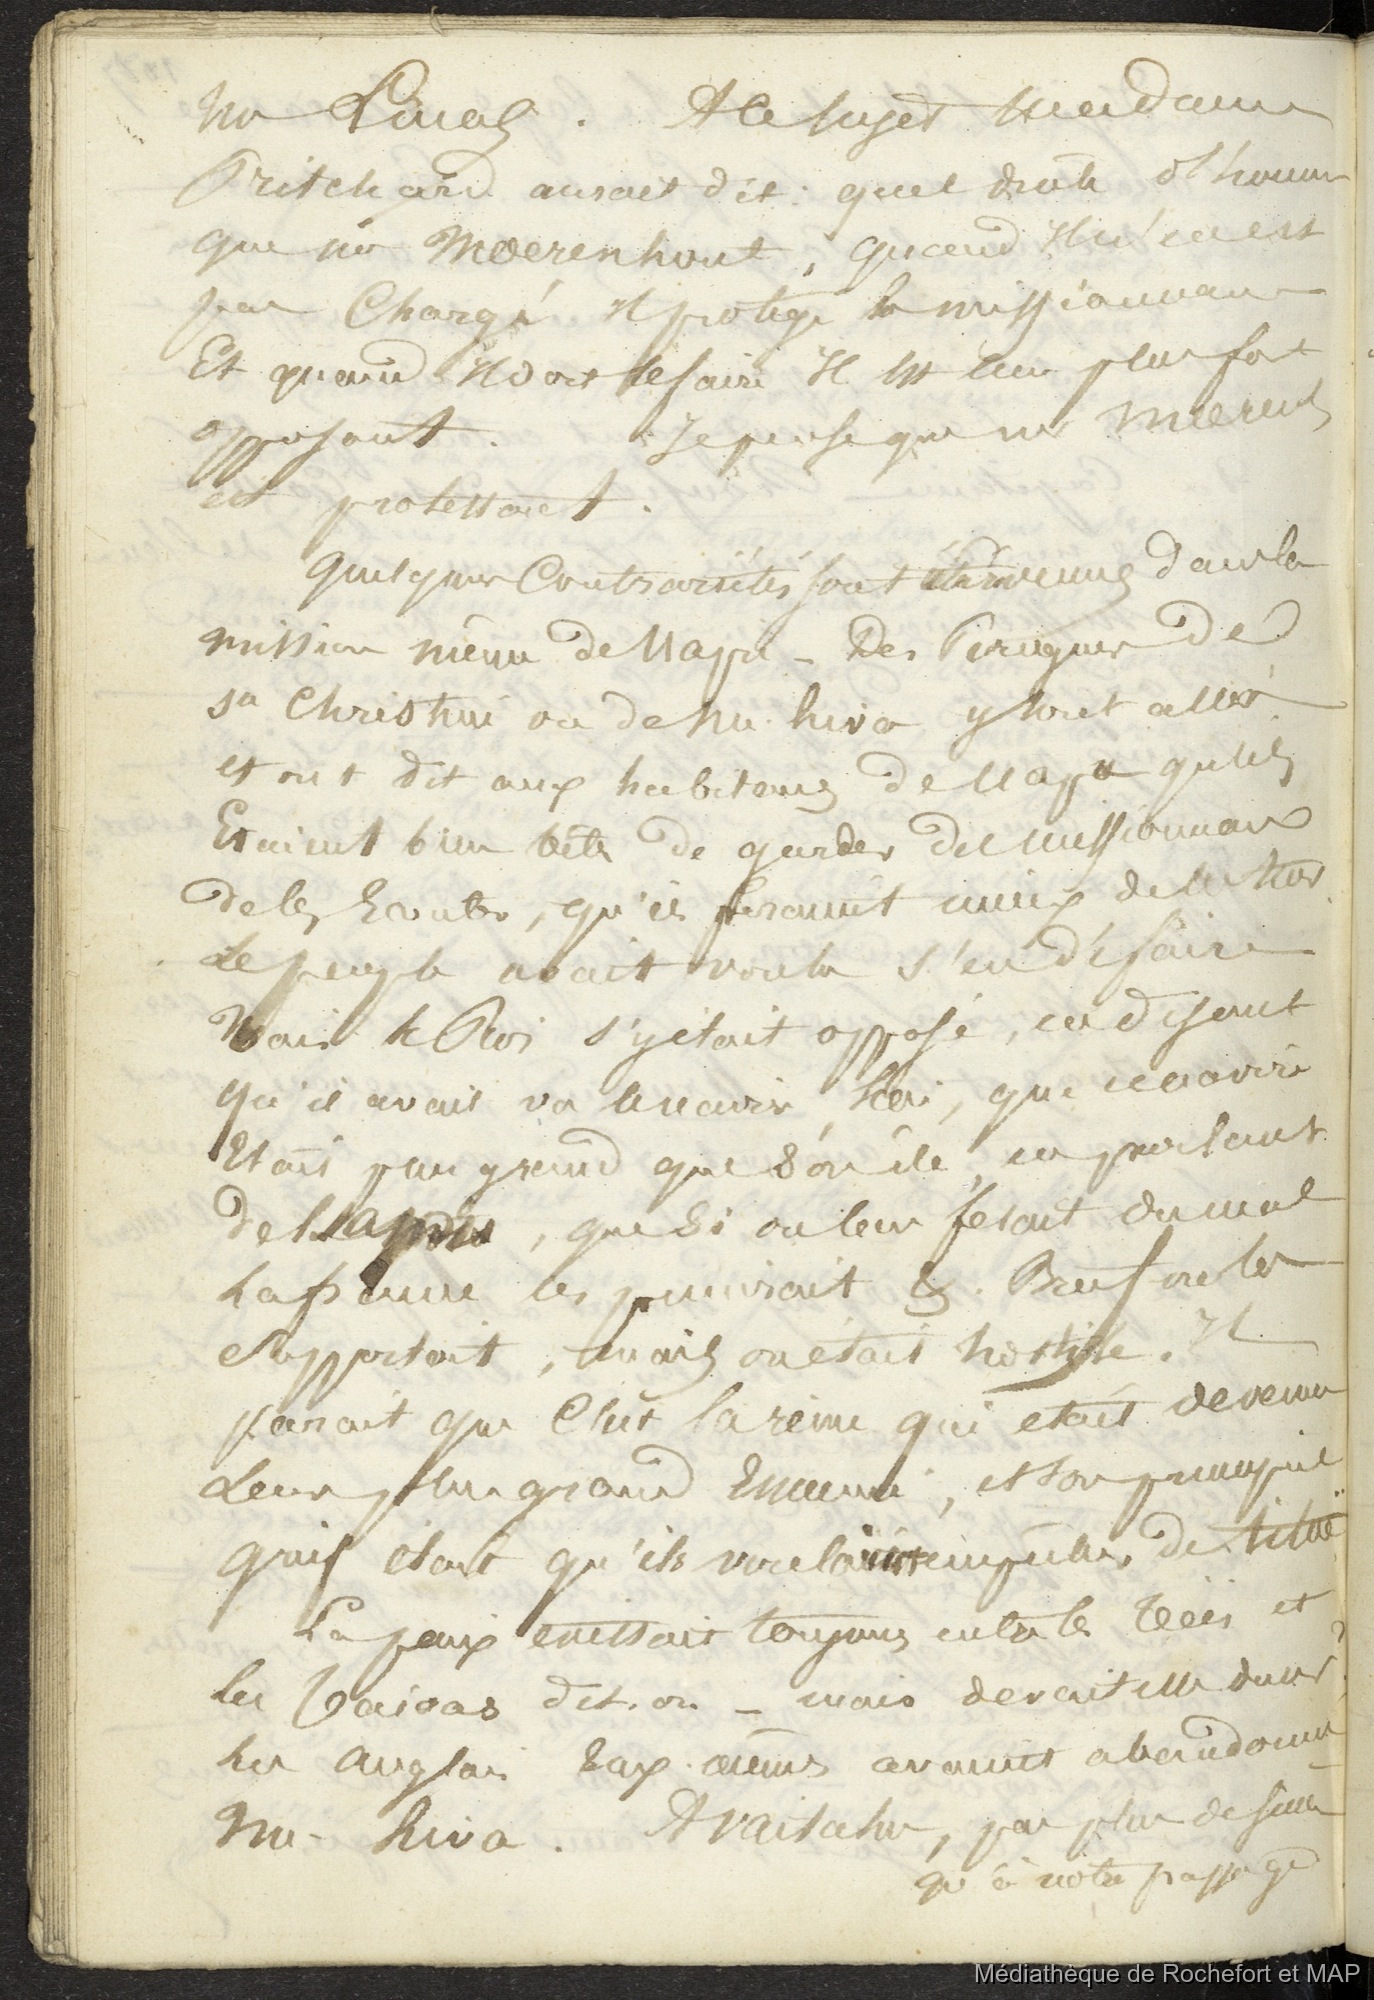 Mr Lucas. A ce sujet Madame
Pritchard aurait dit: quel drole d'homme
que mr Moerenhout, quand il n'en est
pas Chargé il protege les missionnaires
Et quand il doit le faire il est leur plus fort
opposant. Je pense que mr Moerenh
est protestant.
quelques Contrariétés sont survenues dans la
mission même de Uapu - Des Pirogues de
Sa Christine ou de nu-hiva y sont allés
et ont dit aux habitans de Uapu qu'ils
Etaient bien bêtes de garder des missionnaires
de les Ecouter, qu'ils feraient mieux de les tuer
Le peuple avait voulu s'en défaire
Mais le Roi s'y était opposé, en disant
qu'il avait vu le navire, lui, que ce navire
Etait plus grand que son île, en parlant
de Uapu, que si on leur fesait du mal
La france les punirait &. Bref on les
supportait, mais on était hostile. Il
parait que C'est la reine qui etait devenue
Leur plus grand Ennemi, et son principal
grief était qu'ils voulaient empêcher de
La paix existait toujours entre les Teiis et
les Taioas dit-on - mais devait elle durer?
Les Anglais Eux-mêmes avaient abandonné
Nu-hiva. A Vaitahu, pas plus de
qu'à notre passage
Médiathèque de Rochefort et MAP